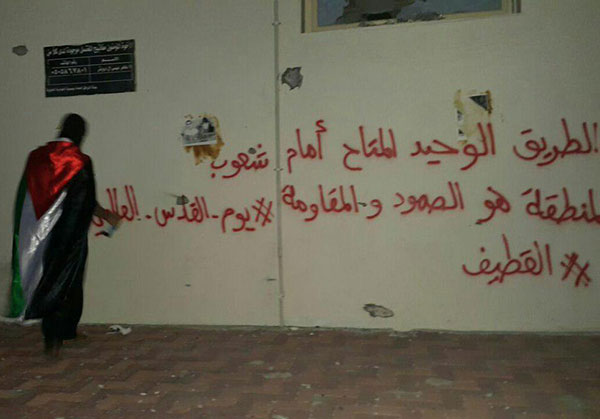 الطريق الوحيد المتاح أمام شعوب
المنطقة هو الصمود و-المقاومة #يوم-القدس-العالمي
#القطيف